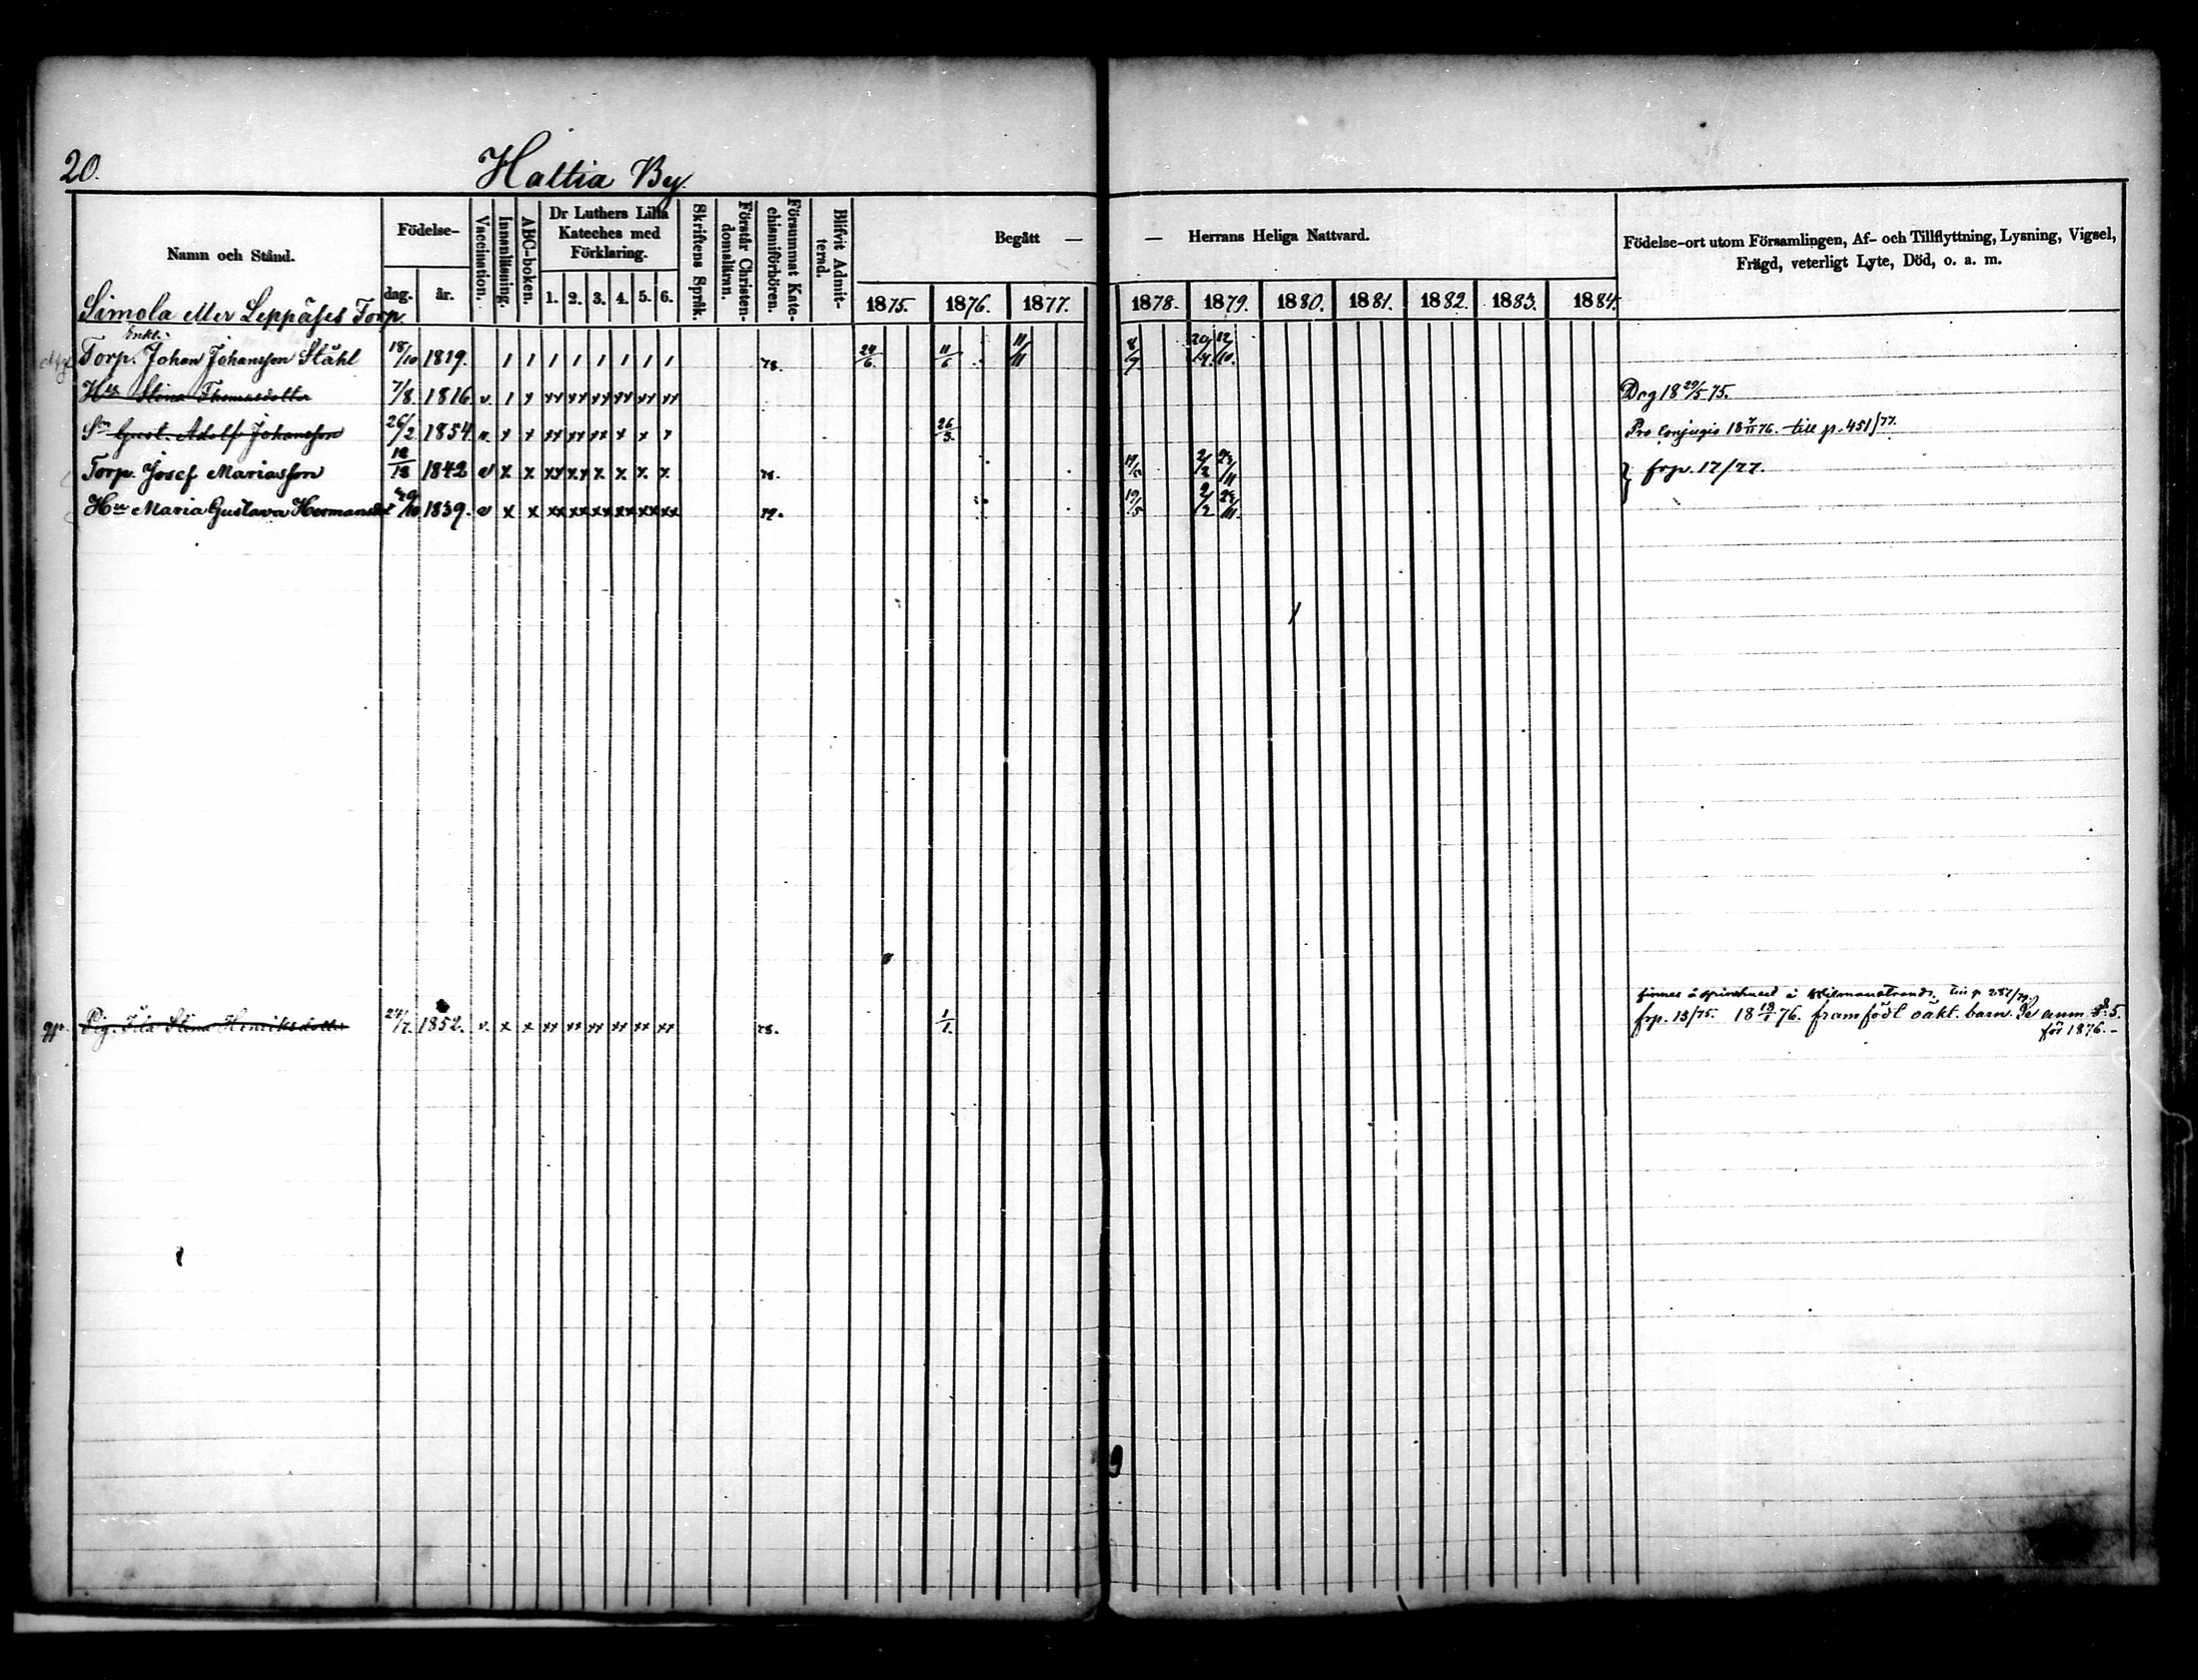 20.
Haltia By.
Namn och Stånd.
Födelse-
dag.
år.
Vaccination.
Innanläsning.
ABC-boken.
Dr Luthers Lilla
Kateches med
Förklaring.
1. 2. 3. 4. 5. 6.
Skriftens Språk.
Förstår Christen-
domsläran.
Försummat Kate-
chismiförhören.
Blifvit Admit-
terad.
Begått — — Herrans Heliga Nattvard.
1875. 1876. 1877. 1878. 1879. 1880. 1881. 1882. 1883. 1884.
Födelse-ort utom Församlingen, Af- och Tillflyttning, Lysning, Vigsel,
Frägd, veterligt Lyte, Död, o. a. m.
Simola eller Leppäses Torp.
Enkl:
Torp. Johan Johansson Ståhl 18/10 1819. 1 1 1 1 1 1 1 1 78. 24/6. 11/6 11/11 8/9 20/4. 12/10.
Hu Stina Thomasdotter 7/8. 1816. v. 1 x xx xx xx xx xx xx Dog 18 29/5 75.
Sn Gust. Adolf Johansson 26/2. 1854. v. x x xx xx xx x x x 26/3. Pro Conjugio 18 76. till p. 451/77.
Torp. Josef Mariasson 1842 v x x xx xx x x x x 78. frp. 17/77.
Hu Maria Gustava Hermansdr 1839. v x x xx xx xx xx xx xx 19/5 2/2
Pig. Stina Henriksdotter 24/7. 1852. v. x x xx xx xx xx xx xx 78. 1/1.
finnes å spinnhuset i Wilmanstrand, till p. 257/79
frp. 13/75. 18 76. framfödt oäkt. barn. Se anm. 5.
för 1876. -